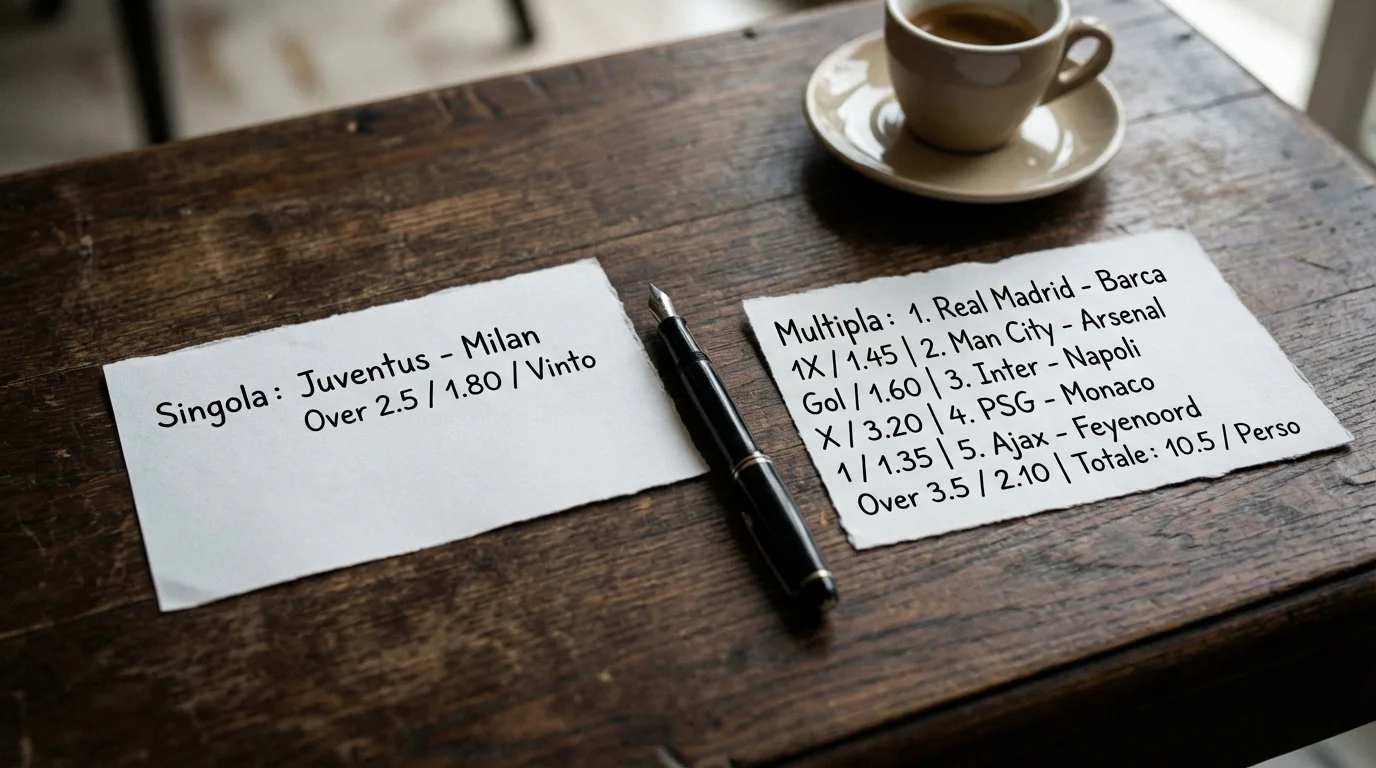 Singola: Juventus - Milan
Over 2.5 / 1.80 / Vinto
Multipla: 1. Real Madrid - Barca
1X / 1.45 | 2. Man City - Arsenal
Gol / 1.60 | 3. Inter - Napoli
X / 3.20 | 4. PSG - Monaco
1 / 1.35 | 5. Ajax - Feyenoord
Over 3.5 / 2.10 | Totale: 10.5 / Perso